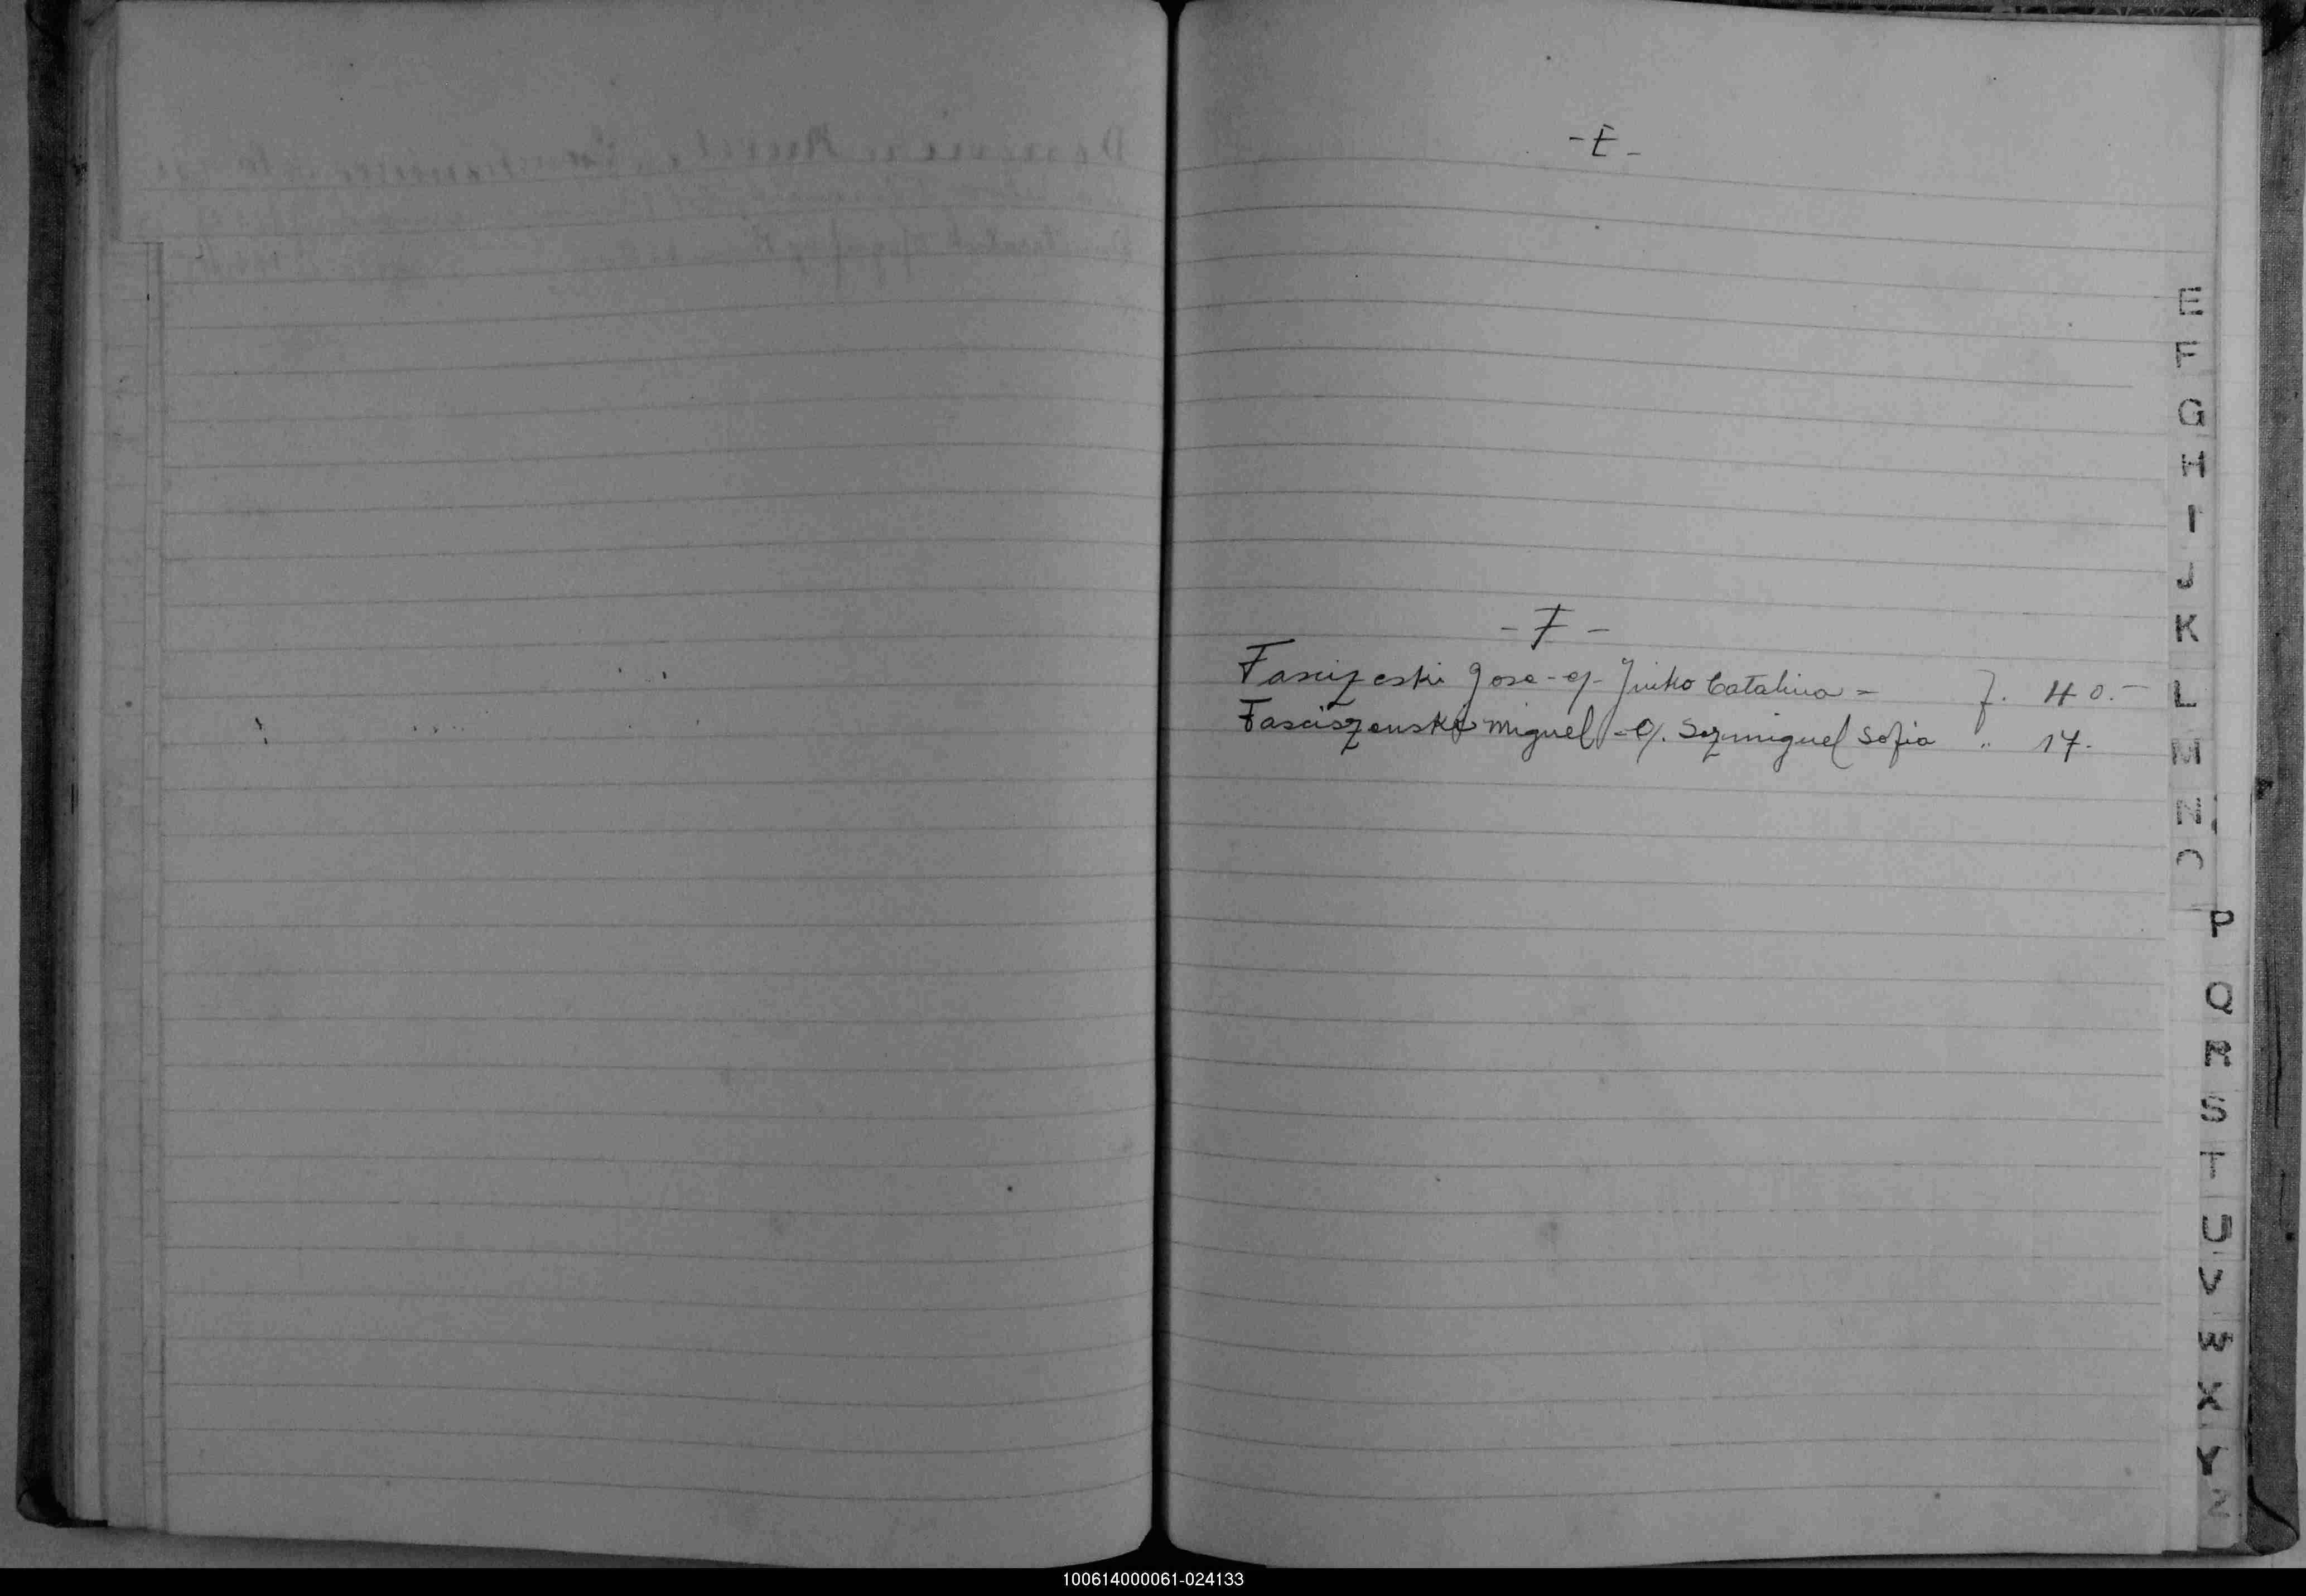 -E-
-F-
Fascizeski Jose - c/- Juiko Catalina - f. 40.-
Fasciszenski Miguel - c/. Sozmiguel Sofia " 17.
E
F
G
H
I
J
K
L
M
N
O
P
Q
R
S
T
U
V
W
X
Y
Z
100614000061-024133